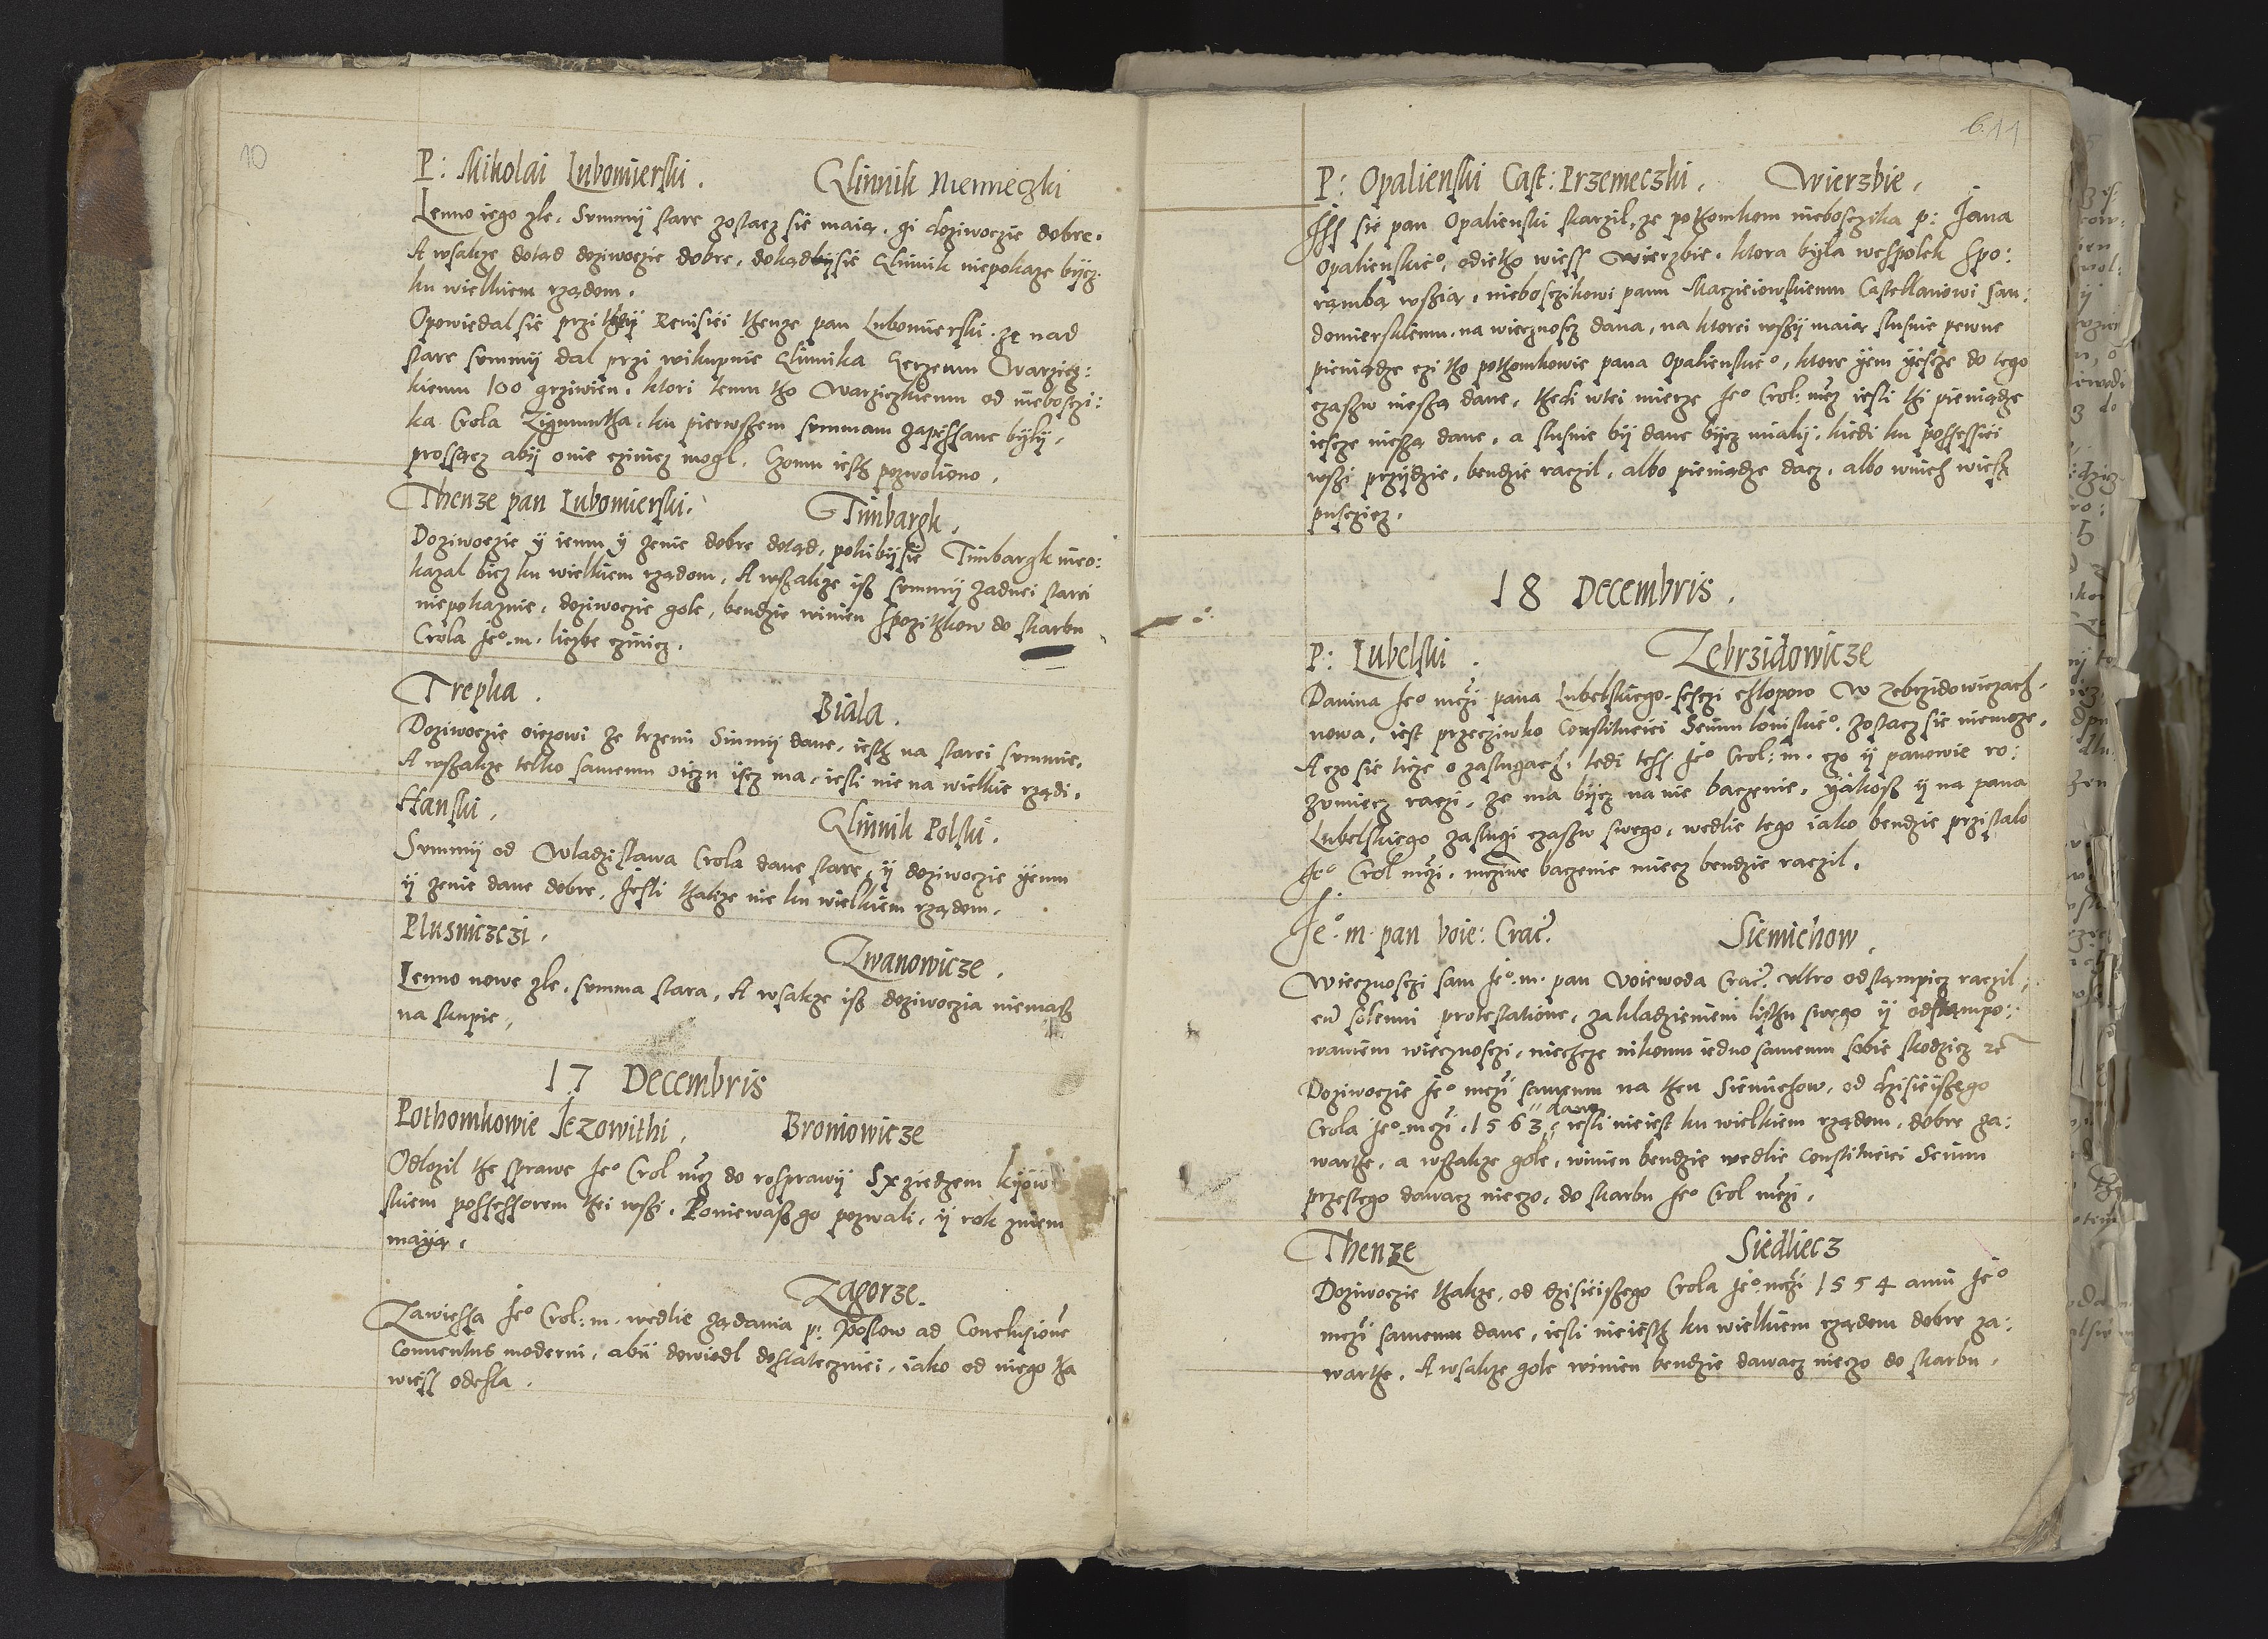 10
P: Mikolai Lubomierski. Glinnik Niemieczki
Lenno iego zle. Summy stare zostacz sie maią. gi dożiwoczie dobre.
A wsakze dotąd doziwoczie dobre, dokąd sie Glinnik niepokaze bycz
ku wielkiem rządom.
Opowiedal sie przi they Reuisiei thenze pan Lubomierski. ze nad
stare summy dal przi wikupnie Glinnika Warzicz:
kiemu 100 grziwien, ktori temu tho Warziczkiemu od niebosczi:
ka Crola Zigmuntha, ku pierwszem summam zapissane byly,
prossącz aby onie czinicz mogl. Czomu iesth pozwoliono.
Thenze pan Lubomierski. Timbargk.
Doziwoczie y iemu y zenie dobre dotąd, pokibysie Timbargk nieo:
kazal bicz ku wielkiem rządom, A wszakze isz summy zadnei starei
niepokaznie, doziwoczie gole, bendzie winien spozithkow do skarbu
Crola Je° m. liczbe czinicz.
Trepka. Biala.
Doziwoczie oiczowi ze trzemi Sinmy dane, iesth na starei summie.
A wszakze telko samemu oiczu iscz ma, iesli nie na wielkie rządi.
Hanski. Glinnik Polski.
Summy od Wladzislawa Crola dane stare, y doziwoczie yemu
y zenie dane dobre, Jesli thakze nie ku wielkiem rządom.
Plusniczczi. Zwanowicze.
Lenno nowe zle, summa stara, A wsakze isz doziwoczia niemasz
na skupie,
17 Decembris
Pothomkowie Jezowithi. Broniowicze
Odlozil the sprawe Je° Crol mcz do rosprawy S xziedzem kijow
skiem possessorem thei wszi. Poniewasz go pozwali, y rok zniem
mayą.
Zagorze.
Zawiessa Je° Crol: m. wedlie ządania p: posłow ad Conclusione
Conuentus moderni, aby dowiodl dostateczniei, iako od niego tha
wiess odesla.
6. 11
P: Opalienski Cast: Przemeczki. Wierzbie.
Jss sie pan Opalienski skarzil, ze pothomkom niebosczika p: Jana
Opalienskie°, odietho wiess Wierzbie, ktora byla wespolek spo:
rąmbą wszią, niebosczikowi panu Macziciowskiemu Castellanowi San:
domierskiemu, na wiecznoscz dana, na ktorei wszy maią slusnie pewne
pieniądze czi tho pothomkowie pana Opalienskie°, ktore yem yescze do tego
czaszu niesza dane, thedi wtei mierze Je° Crol: mcz iesli thi pieniądze
iescze niesza dane, a slusnie by dane bycz mialy, kiedi ku possessiei
wszi przydzie, bendzie raczil, albo pieniądze dacz, albo wnich wiesz
pusczicz.
18 Decembris.
P: Lubelski. Zebrzidowicze
Danina Je° mczi pana Lubelskiego, sesczi chlopow W Zebrzidowiczach.
nowa, iest przecziwko Constitucici Seimu lonskie°, zostacz sie niemoze.
A czo sie ticze o zaslugach, tedi tess Je° Crol: m. czo y panowie ro:
zumiecz raczi, ze ma bycz na nie baczenie, yakosz y na pana
Lubelskiego zaslugi czaszu swego, wedlie tego iako bendzie przistalo
Je° Crol mczi. mcziwe baczenie miecz bendzie raczil.
Je° m. pan Voie: Crac. Siemichow.
Wiecznosczi sam Je° m. pan Voiewoda Crac. ultro odstampicz raczil,
cu solenni protestatione, zakladzieniem listhu swego y odstampo:
waniem wiecznosczi, niechcze nikomu iedno samemu sobie skodzicz
Doziwoczie Je° mczi samemu na then Siemichow, od dzisieiszego
Crola Je° mczi, 1563 dane iesli nie iest ku wielkiem rządom, dobre za:
warthe, a wszakze gole, winien bendzie wedlie Constitucici Seimu
przestego dawacz nieczo, do skarbu Je° Crol mczi.
Thenze Siedliecz
Doziwoczie thakze, od dzisieiszego Crola Je° mczi 1554 anni Je°
mczi samemu dane, iesli nie iesth ku wielkiem rządom dobre za:
warthe. A wsakze gole winien bendzie dawacz nieczo do skarbu.